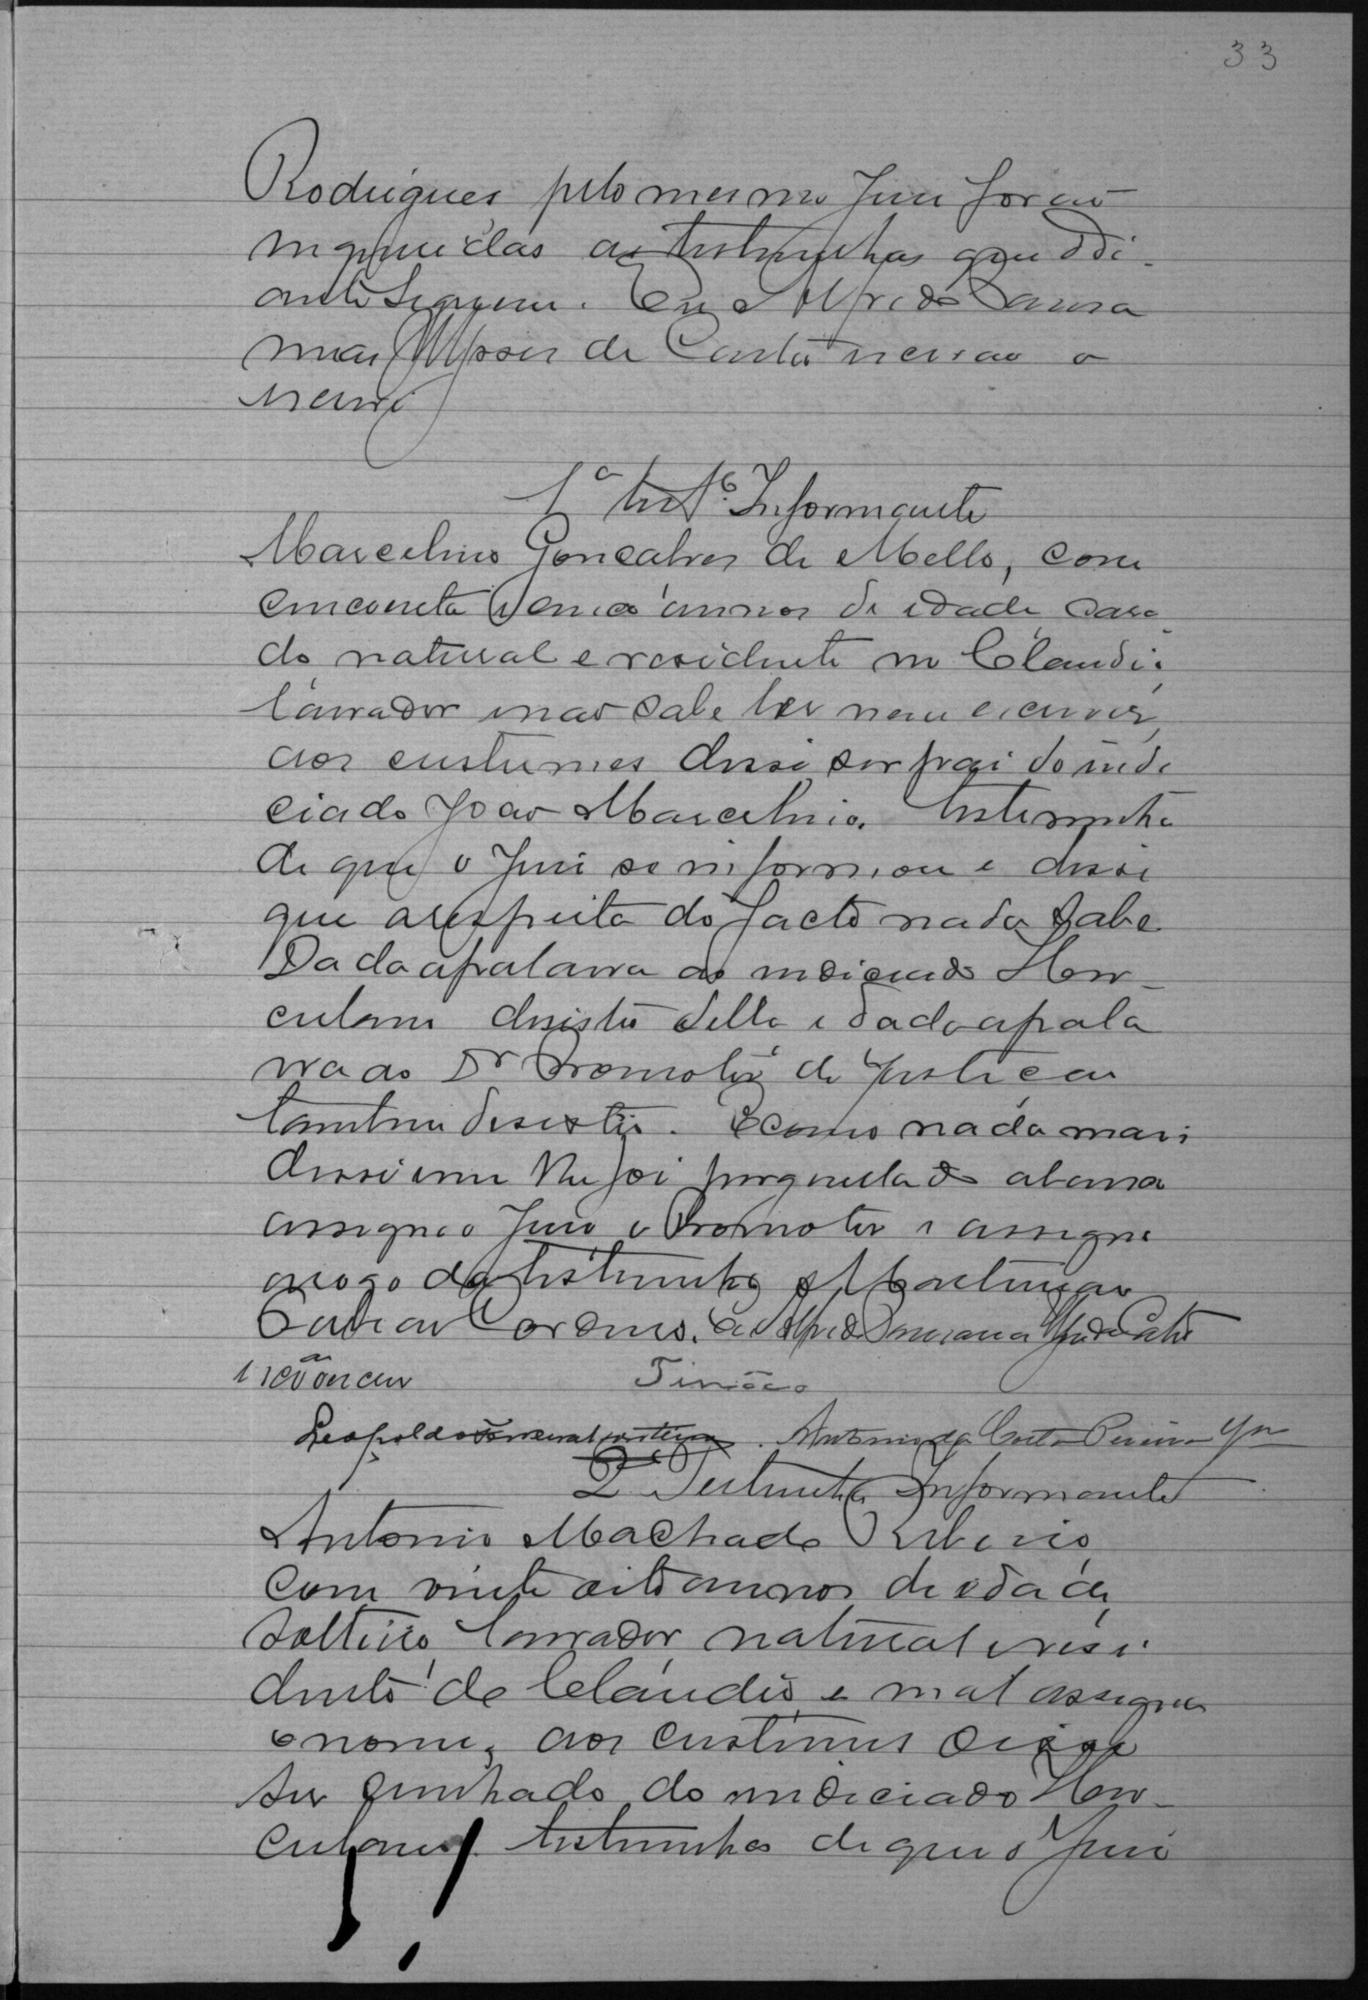 33
Rodrigues pelo mesmo Juiz forão
inqueridas as testemunhas que adi-
ante seguem. Eu Alfredo
de Castro escrivão o
escrevi
1ª test. Informante
Marcelino Gonçalves de Mello, com
cincoenta e cinco annos de idade casa
do natural e residente no Claudio
lavrador e não sabe ler nem escrever,
aos custumes disse ser pai do indi
ciado João Marcelino. Testemunha
de que o Juiz se informou e disse
que a respeito do facto nada sabe.
Dada a palavra ao indiciado Her-
culano desistio della e dada a pala
vra ao Dr Promotor de Justiça
tambem desistio. E como nada mais
disse e nem lhe foi perguntado
assigna o Juiz e Promotor e assigna
a rogo da testemunha Martiniano
Cordeiro. Eu Alfredo
Tinôco
Leopoldo Antonio da Costa Pereira Jor
2ª Testemunha Informante
Antonio Machado Ribeiro,
com vinte oito annos de idade,
solteiro, lavrador, natural e resi
dente do Claudio e mal assigna
o nome, aos custumes disse
ser cunhado do indiciado Her-
culano. testemunha de que o Juiz